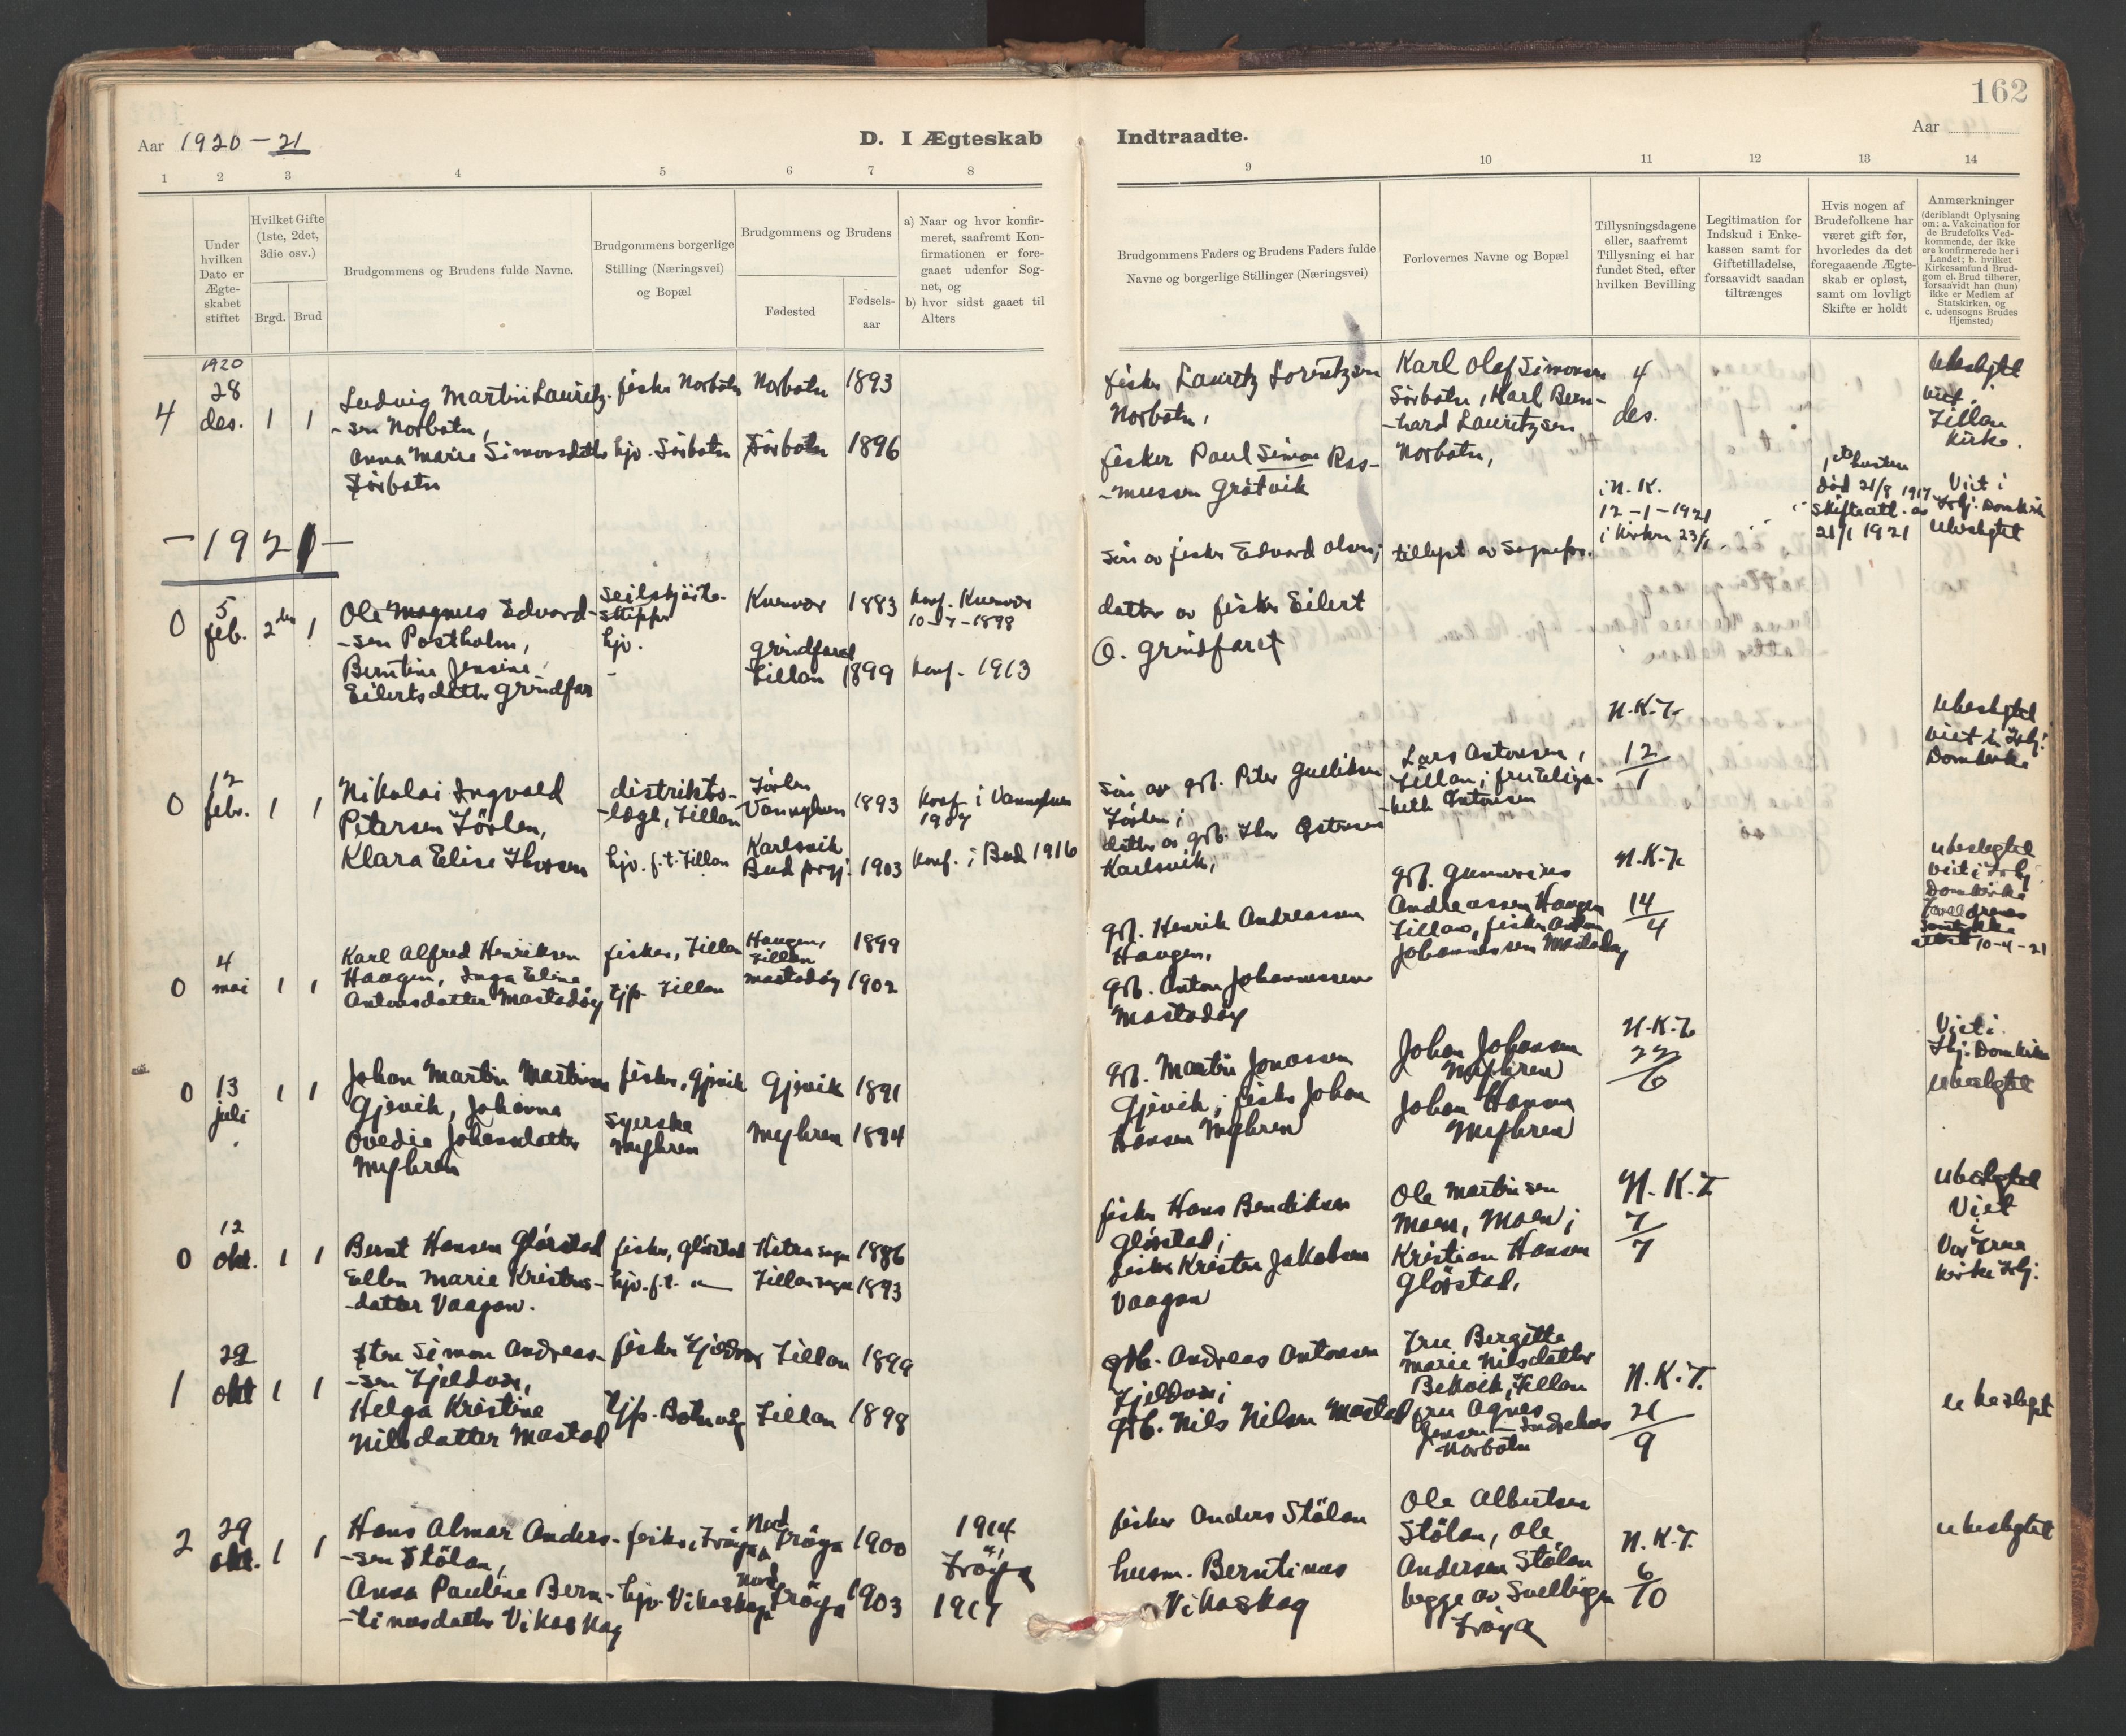 162
Aar 1920-21
D. I Ægteskab
Indtraadte.
Aar
1 2 3 4 5 6 7 8
9 10 11 12 13 14
Under hvilken Dato er Ægte-skabet stiftet
Hvilket Gifte (1ste, 2det, 3die osv.)
Brgd. Brud
Brudgommens og Brudens fulde Navne.
Brudgommens borgerlige Stilling (Næringsvei) og Bopæl
Brudgommens og Brudens
Fødested
Fødsels-aar
a) Naar og hvor konfir-
meret, saafremt Kon-
firmationen er fore-
gaaet udenfor Sog-
net, og
b) hvor sidst gaaet til
Alters
Brudgommens Faders og Brudens Faders fulde
Navne og borgerlige Stillinger (Næringsvei)
Forlovernes Navne og Bopæl
Tillysningsdagene
eller, saafremt
Tillysning ei har
fundet Sted, efter
hvilken Bevilling
Legitimation for
Indskud i Enke-
kassen samt for
Giftetilladelse,
forsaavidt saadan
tiltrænges
Hvis nogen af
Brudefolkene har
været gift før,
hvorledes da det
foregaaende Ægte-
skab er opløst,
samt om lovligt
Skifte er holdt
Anmærkninger
(deriblandt Oplysning
om: a. Vakcination for
de Brudefolks Ved-
kommende, der ikke
ere konfirmerede her i
Landet; b. hvilket
Kirkesamfund Brud-
gom el. Brud tilhører,
forsaavidt han (hun)
ikke er Medlem af
Statskirken, og
c. udensogns Brudes
Hjemsted)
1920
4 28 des. 1 1
Ludvig Martin Lauritz-
-sen Norbotn,
Anna Marie Simonsdatter
Sörbotn
fisker Norbotn
hjv. Sörbotn
Norbotn 1893
Sörbotn 1896
fisker Lauritz Lorentzen
Norbotn,
fisker Paul Simon Ras-
-mussen Grötvik
Karl Olaf Simonsen
Sörbotn, Karl Bern-
-hard Lauritzsen
Norbotn,
4
des.
ubeslgtet
viet.
Tillan
Kirke.
-1921-
0 5 feb. 2den 1
Ole Magnus Edvard-
-sen Postholm,
Berntine Jensine
Eilertsdatter Grindfar
seilskjöite-
skipper
hjv.
Kvenvær 1883
Grindfaret
Tillan 1899
konf. Kvenvær
10-7-1898
konf. 1913
Sön av fisker Edvard Olsen;
datter av fisker Eilert
O. Grindfaret
tillyst av Sognepr.
i N. K.
12-1-1921
i Kirken 23/1
död 21/8 1917
skifteatt. av
21/1 1921
Viet i
Trhj. Domkirke
ubeslgtet
0 12 febr. 1 1
Nikolai Ingvald
Petersen Törlen,
Klara Elise Thorsen
distrikts-
-læge, Tillan
hjv. f.t. Tillan
Törlen
Vannylven 1893
Karlsvik
Bud prgj. 1903
Konf. i Vannylven
1907
Konf. i Bud 1916
Sön av gbr. Peter Gulliksen
Törlen;
datter av gbr. Thor Østensen
Karlsvik,
Lars Antonsen,
Tillan; fru Elisa-
-beth Antonsen
N.K.T.
12/1
ubeslgtet
viet i Trhj.
Domkirke
0 4 mai 1 1
Karl Alfred Henriksen
Haugen, Inga Eline
Antonsdatter Mastadöy
fisker, Tillan
tjp. Tillan
Haugen,
Tillan 1899
Mastadöy 1902
gbr. Henrik Andreassen
Haugen,
gbr. Anton Johannessen
Mastadöy
gbr. Gunnerius
Andreassen Haugen
Tillan, fisker Anton
Johannessen Mastadöy
N.K.T.
14/4
ubeslegtet
viet i Trhj.
Domkirke
10-4-21
0 13 juli 1 1
Johan Martin Martinsen
Gjevik, Johanna
Ovedia Johansdatter
Myhren
fisker, Gjevik
syerske
Myhren
Gjevik 1891
Myhren 1894
gbr. Martin Jonassen
Gjevik; fisker Johan
Hansen Myhren
Johan Johansen
Myhren
Johan Hansen
Myhren
N.K.T.
22/6
Viet i
Trhj. Domkirke
ubeslgtet
0 12 okt. 1 1
Bernt Hansen Glörstad
Ellen Marie Kristens-
-datter Vaagan.
fisker, Glörstad
hjv. f.t. "
Hitra sogn 1886
Tillan sogn 1893
fisker Hans Bendiksen
Glörstad;
fisker Kristen Jakobsen
Vaagan
Ole Martinsen
Moen, Moen;
Kristian Hansen
Glörstad,
N.K.T
7/7
ubeslgtet
Viet
i
Vor Frue
kirke Trhj.
1 22 okt 1 1
Sten Simon Andreas-
-sen Kjeldvær,
Helga Kristine
Nilsdatter Mastad
fisker Kjeldvær
tjp. Botnvåg
Tillan 1899
Tillan 1898
gbr. Andreas Antonsen
Kjeldvær;
gbr. Nils Nilsen Mastad
Fru Bergitte
Marie Nilsdatter
Bekvik, Tillan
fru Agnes
Jensen Indrebas
Norbotn
N.K.T.
21/9
ubeslegt
2 29 okt. 1 1
Hans Almar Anders-
-sen Stölan,
Anna Pauline Bern-
-tinusdatter Vikaskag
fisker, Fröya
hjv. Vikaskag
Nord
Fröya 1900
Nord
Fröya 1903
1914
Fröya
1917
fisker Anders Stölan
husm. Berntinus
Vikaskag
Ole Albertsen
Stölan, Ole
Andersen Stölan
begge av Svellingen
Fröya
N.K.T.
6/10
ubeslegtet